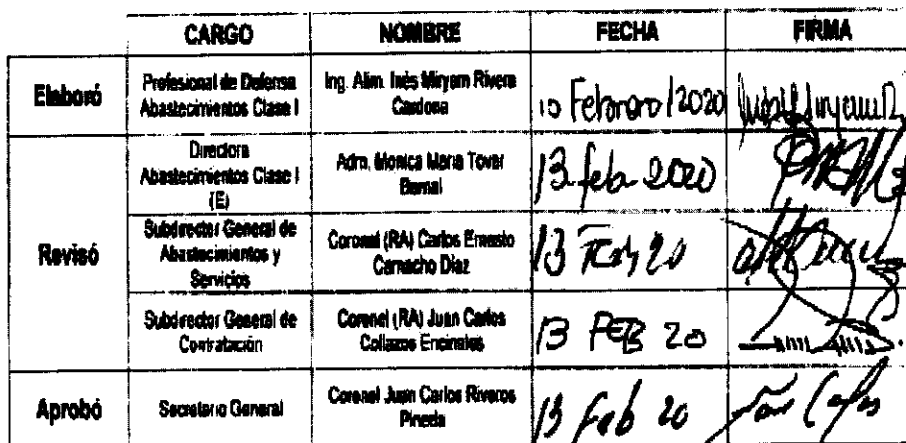 CARGO NOMBRE FECHA FIRMA
Elaboró
Profesional de Defensa
Abastecimientos Clase I
Ing. Alim. Inés Miryam Rivera
Cardona
10 Febrero / 2020
Revisó
Directora
Abastecimientos Clase I
(E)
Adm. Monica Maria Tovar
Bernal
13 feb 2020
Subdirector General de
Abastecimientos y
Servicios
Coronel (RA) Carlos Ernesto
Camacho Diaz
13 Feb 20
Subdirector General de
Contratación
Coronel (RA) Juan Carlos
Collazos Encinales
13 FEB 20
Aprobó
Secretario General
Coronel Juan Carlos Riveros
Pineda
13 feb 20